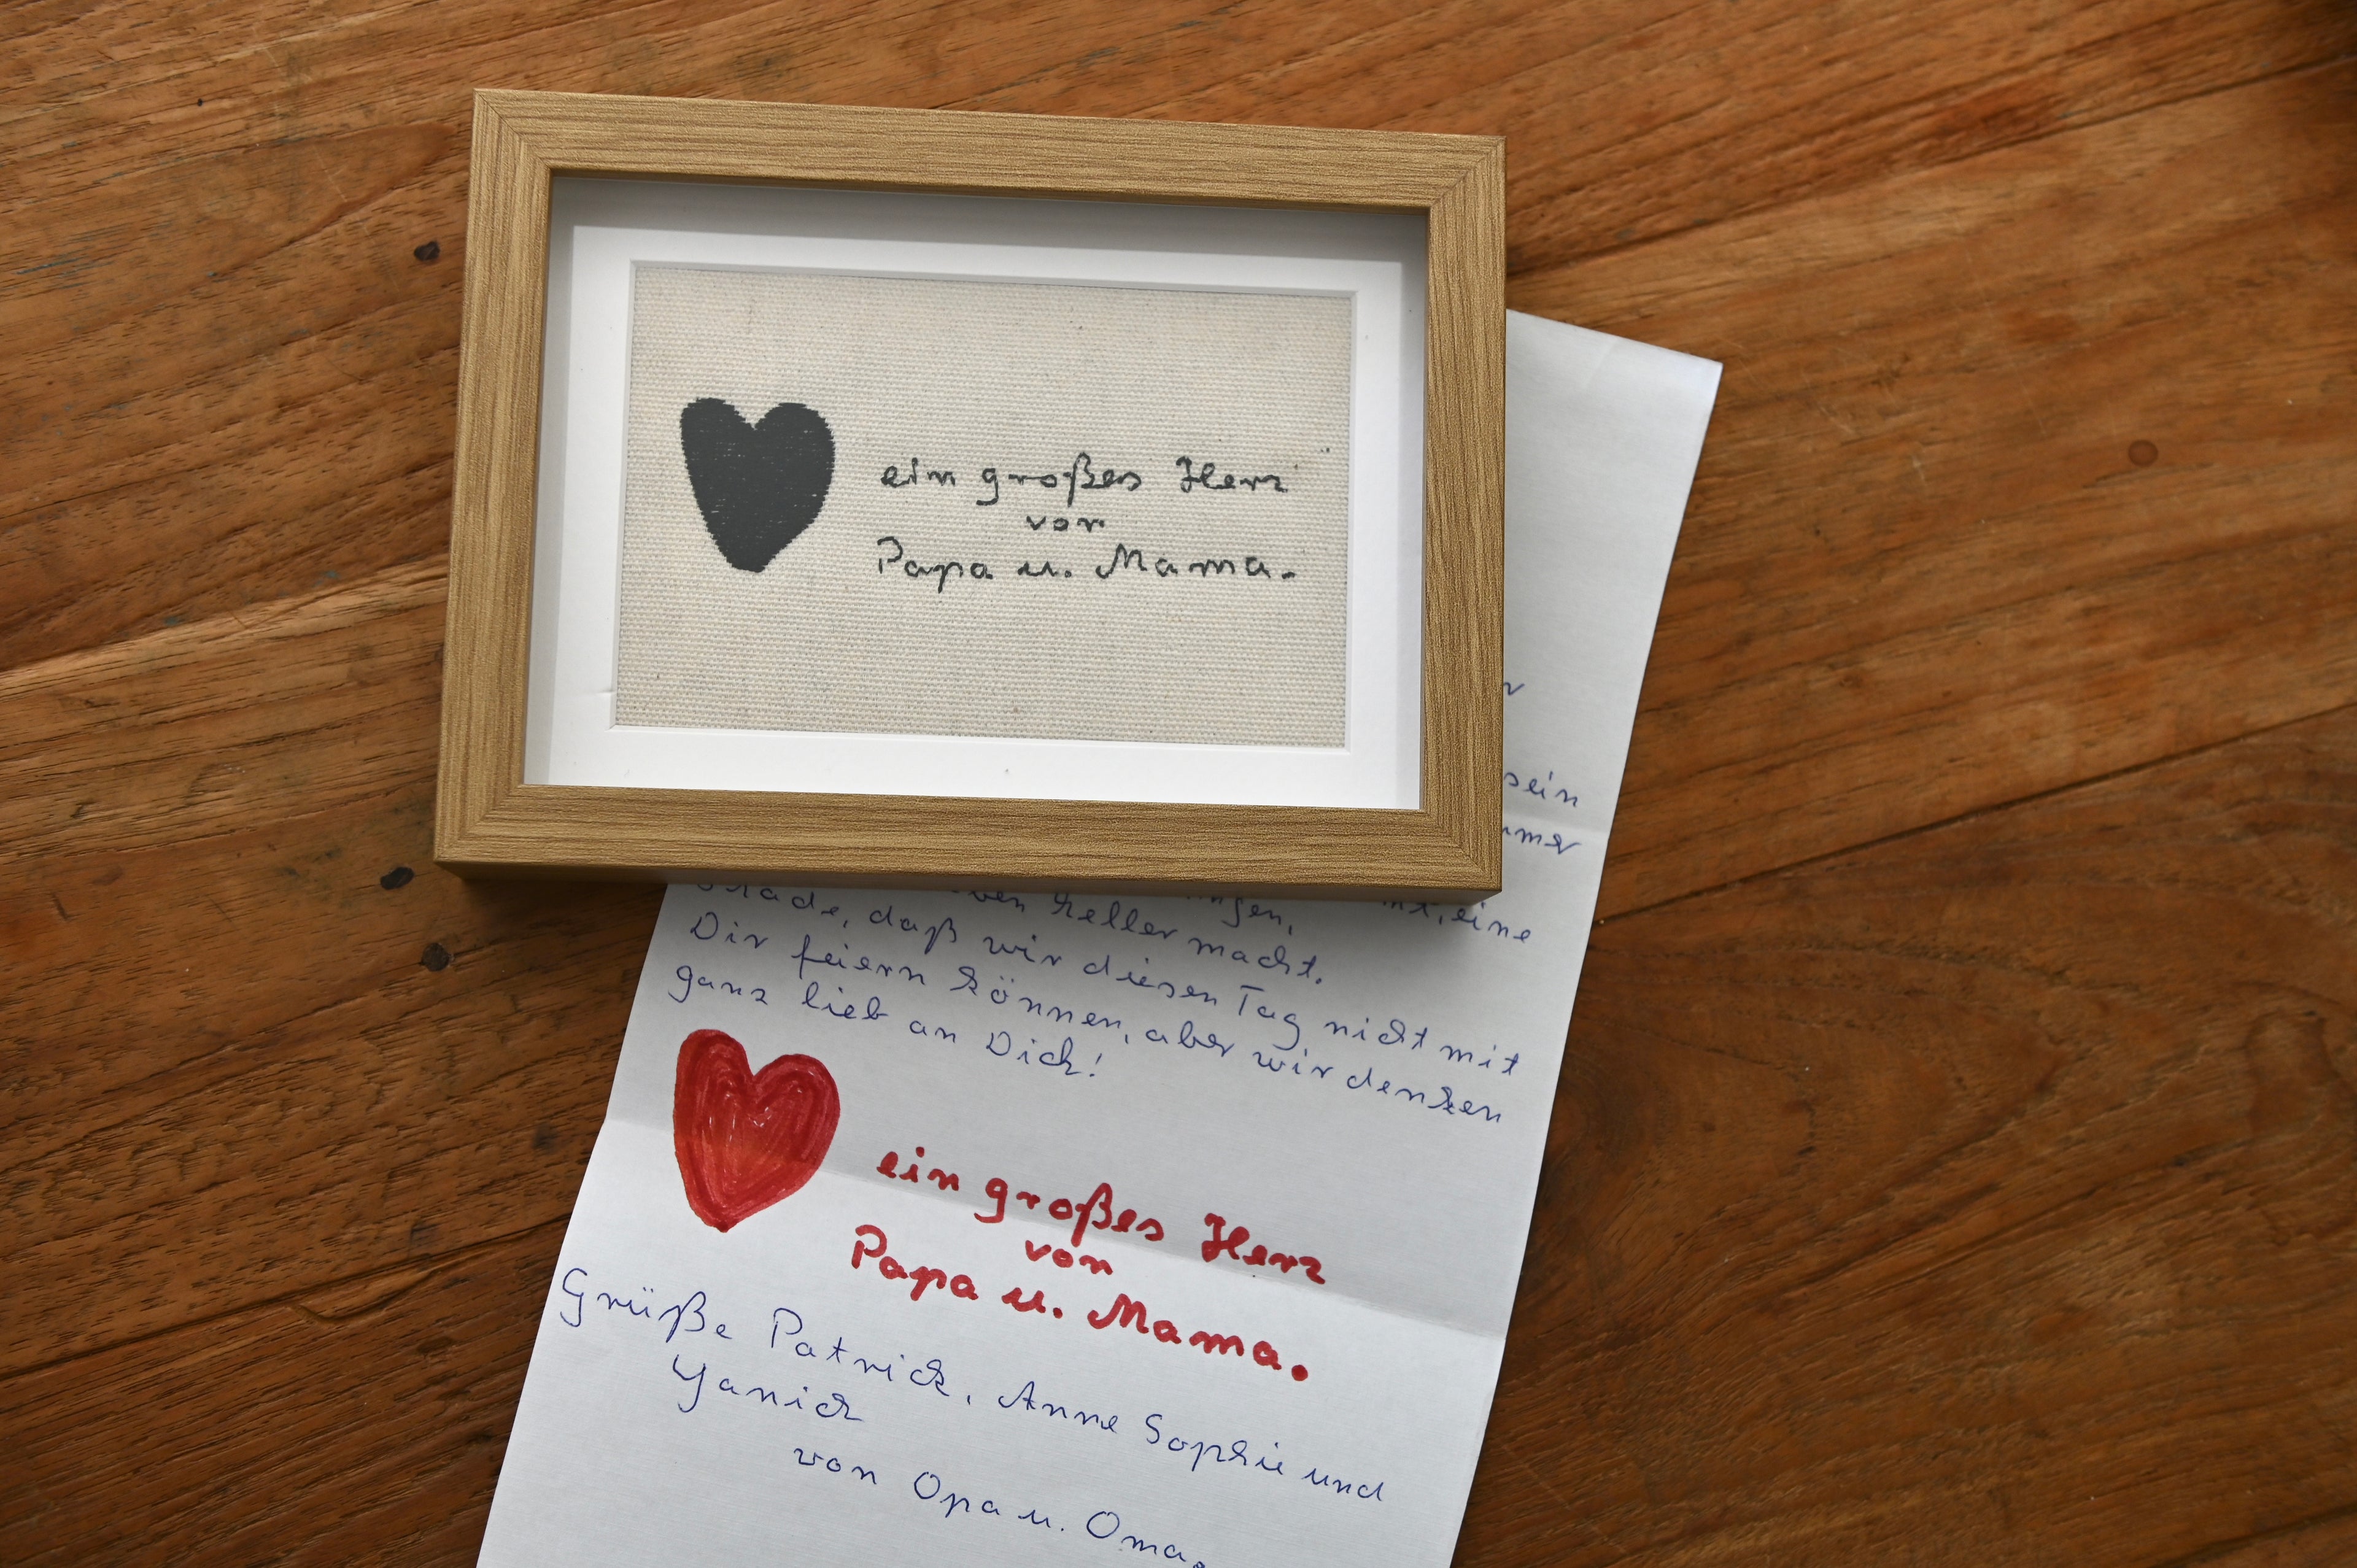 ein großes Herz
von
Papa u. Mama.
sein
eine
heller macht.
daß wir diesen Tag nicht mit
Dir feiern können, aber wir denken
ganz lieb an Dich!
ein großes Herz
von
Papa u. Mama.
Grüße Patrick, Anne Sophie und
Yanick
von Opa u. Oma.